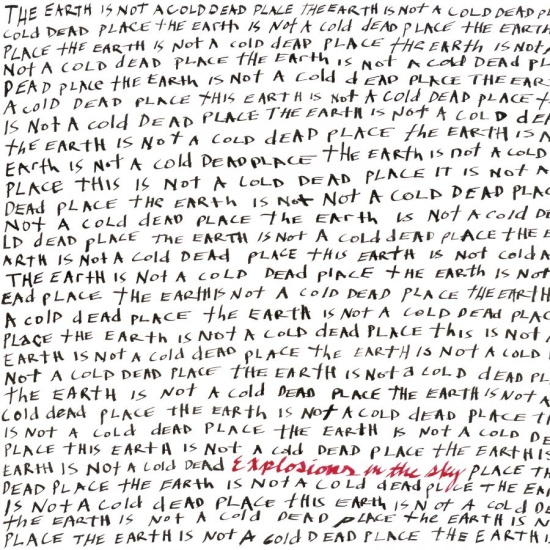 THE EARTH IS NOT A COLD DEAD PLACE THE EARTH IS NOT A COLD DEAD P
COLD DEAD PLACE THE EARTH IS NOT A COLD DEAD PLACE THE EARTH
PLACE THE EARTH IS NOT A COLD DEAD PLACE THE EARTH IS NOT A
NOT A COLD DEAD PLACE THE EARTH IS NOT A COLD DEAD PL
DEAD PLACE THE EARTH IS NOT A COLD DEAD PLACE THE EAR
A COLD DEAD PLACE THIS EARTH IS NOT A COLD DEAD PLACE T
IS NOT A COLD DEAD PLACE THE EARTH IS NOT A COLD DEA
THE EARTH IS NOT A COLD DEAD PLACE THE EARTH IS N
EARTH IS NOT A COLD DEAD PLACE THE EARTH IS NOT A COLD
PLACE THIS IS NOT A COLD DEAD PLACE IT IS NOT A
DEAD PLACE THE EARTH IS NOT NOT A COLD DEAD PLAC
NOT A COLD DEAD PLACE THE EARTH IS NOT A COLD DE
LD DEAD PLACE THE EARTH IS NOT A COLD DEAD PLACE THE E
ARTH IS NOT A COLD DEAD PLACE THIS EARTH IS NOT COLD A
THE EARTH IS NOT A COLD DEAD PLACE THE EARTH IS NOT
EAD PLACE THE EARTH IS NOT A COLD DEAD PLACE THE EARTH
A COLD DEAD PLACE THE EARTH IS NOT A COLD DEAD PLAC
PLACE THE EARTH IS NOT A COLD DEAD PLACE THIS IS NOT
EARTH IS NOT A COLD DEAD PLACE THE EARTH IS NOT A COLD
NOT A COLD DEAD PLACE THE EARTH IS NOT A COLD DEAD PL
THE EARTH IS NOT A COLD DEAD PLACE THE EARTH IS NOT A
COLD DEAD PLACE THE EARTH IS NOT A COLD DEAD PLACE T
IS NOT A COLD DEAD PLACE THE EARTH IS NOT A COLD DE
PLACE THIS EARTH IS NOT A COLD DEAD PLACE THE EARTH IS
EARTH IS NOT A COLD DEAD Explosions in the sky PLACE TH
DEAD PLACE THE EARTH IS NOT A COLD DEAD PLACE THE EA
IS NOT A COLD DEAD PLACE THIS EARTH IS NOT A COLD
THE EARTH IS NOT A COLD DEAD PLACE THE EARTH IS N
PLACE THE EARTH IS NOT A COLD DEAD PLACE THE EARTH IS